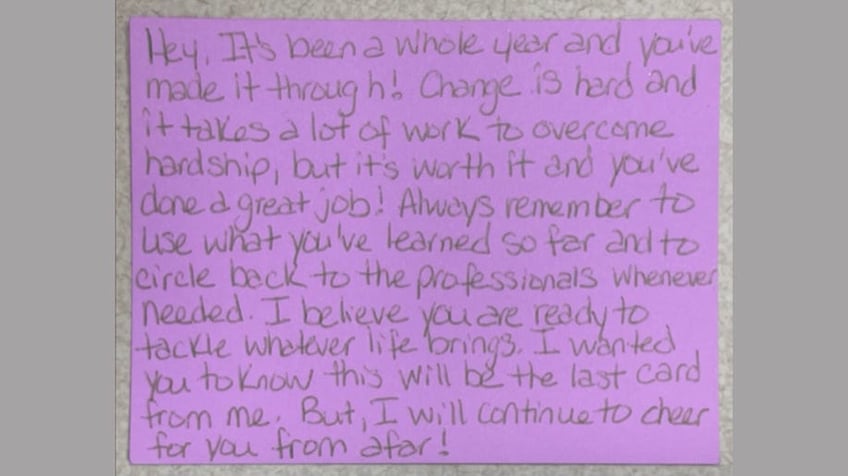 Hey, It's been a whole year and you've
made it through! Change is hard and
it takes a lot of work to overcome
hardship, but it's worth it and you've
done a great job! Always remember to
use what you've learned so far and to
circle back to the professionals whenever
needed. I believe you are ready to
tackle whatever life brings. I wanted
you to know this will be the last card
from me. But, I will continue to cheer
for you from afar!